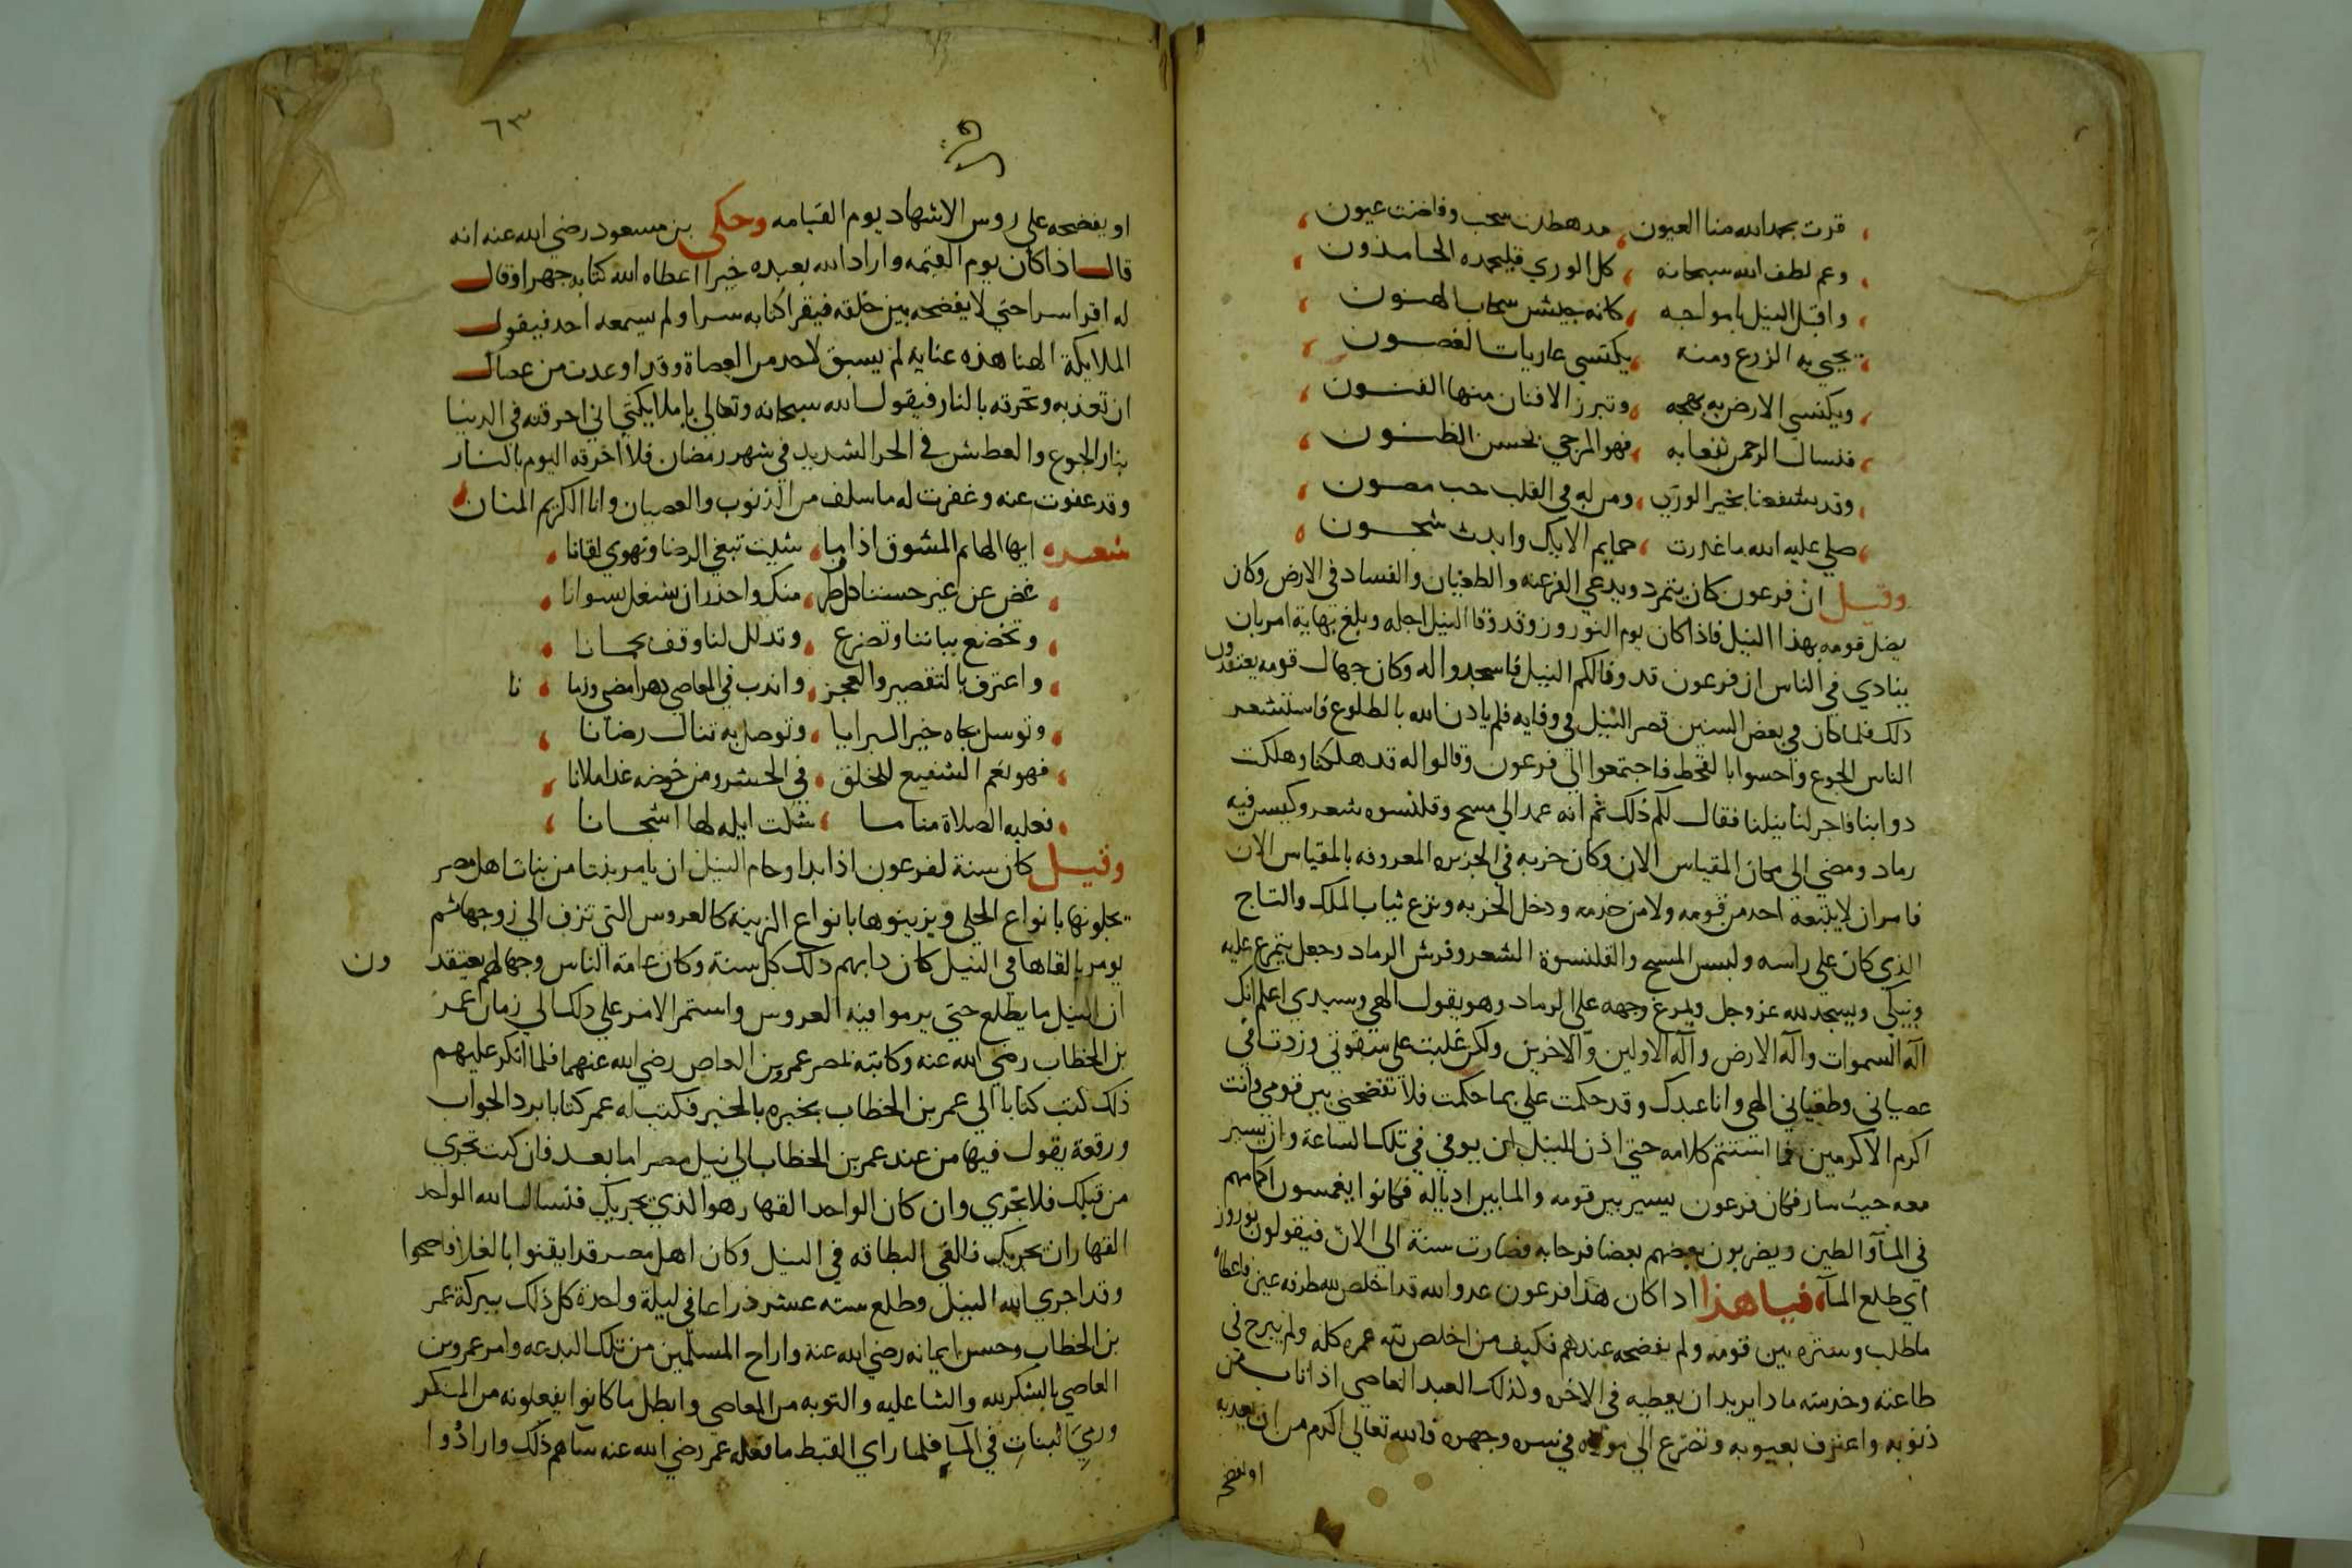 قرت بحمد الله منا العيون مد هطلت سحب وفاضت عيون
وعم لطف الله سبحانه كل الوري فليحمده الحامدون
واقبل النيل بامواجه كانه جيش سحاب الهتون
يحيي به الزرع ومنه يكتسي عاريات الغصون
ويكتسي الارض به بهجه وتبرز الافنان منها الفنون
فنسال الرحمن نفعا به فهو المرجي لحسن الظنون
وقد شفعنا بخير الوري ومن له في القلب حب مصون
صلي عليه الله ما غردت حمايم الايك وابدت شجون
وقيل ان فرعون كان يتمرد ويدعي الفرعنه والطغيان والفساد في الارض وكان
يضل قومه بهذا النيل فاذا كان يوم النوروز وقد وفا النيل اجله وبلغ نهاية امر بان
ينادي في الناس ان فرعون قد وفا لكم النيل فاسجدوا له وكان جهال قومه يعتقدون
ذلك فلما كان في بعض السنين قصر النيل في وفايه فلم ياذن الله بالطلوع فاستشعر
الناس الجوع واحسوا بالقحط فاجتمعوا الي فرعون وقالوا له قد هلكنا وهلكت
دوابنا فاجر لنا نيلنا فقال لكم ذلك ثم انه عمد الي مسح وقلنسوه شعر وكيس فيه
رماد ومضي الي مكان المقياس الان وكان خربه في الجزيره المعروفه بالمقياس الان
فامر ان لا يتبعه احد من قومه ولا من خدمه ودخل الخربه ونزع ثياب الملك والتاج
الذي كان علي راسه ولبس المسح والقلنسوة الشعر وفرش الرماد وجعل يتمرغ عليه
ويبكي ويسجد لله عز وجل ويمرغ وجهه علي الرماد وهو يقول الهي وسيدي اعلم انك
اله السموات واله الارض واله الاولين والاخرين ولكن غلبت علي شقوتي وزدت في
عصياني وطغياني الهي وانا عبدك وقد حكمت علي بما حكمت فلا تفضحني بين قومي وانت
اكرم الاكرمين فما استتم كلامه حتي اذن للنيل ان يوفي في تلك الساعة وان يسير
معه حيث سار فكان فرعون يسير بين قومه والما بين اذياله فكانوا يغمسون اكمامهم
في الماء والطين ويضربون بعضهم بعضا فرحا به فصارت سنة الي الان فيقولون نوروز
اي طلع الماء فيا هذا اذا كان هذا فرعون عدو الله قد اخلص لله طرفه عين فاعطاه
ما طلب وستره بين قومه ولم يفضحه عندهم فكيف من اخلص لله عمره كله ولم يبرح في
طاعته وخدمته ماذا يريد ان يعطيه في الاخره ولذلك العبد العاصي اذا تاب من
ذنوبه واعترف بعيوبه وتضرع الي مولاه في سره وجهره فالله تعالي اكرم من ان يعذبه
او يفضحه
٦٣
او يفضحه علي روس الاشهاد يوم القيامه وحكي بن مسعود رضي الله عنه انه
قال اذا كان يوم القيمه واراد الله بعبده خيرا اعطاه الله كتابه جهرا وقال
له اقرا سرا حتي لا يفضحه بين خلقه فيقرا كتابه سرا ولم يسمعه احد فيقول
الملايكة الهنا هذه عنايه لم يسبق لاحد من العصاة وقد اوعدت من عصاك
ان تعذبه وتحرقه بالنار فيقول الله سبحانه وتعالي يا ملايكتي اني احرقته في الدنيا
بنار الجوع والعطش في الحر الشديد في شهر رمضان فلا احرقه اليوم بالنار
وقد عفوت عنه وغفرت له ما سلف من الذنوب والعصيان وانا الكريم المنان
شعر ايها الهايم المشوق اذا ما شيت تبغي الرضا وتهوي لقانا
غض عن غير حسننا كل طرف منك واحذر ان تشتغل بسوانا
وتخضع ببابنا وتضرع وتدلل لنا وقف بحمانا
واعترف بالتقصير والعجز واندب في المعاصي دهرا مضي وزمانا
وتوسل بجاه خير البرايا وتوصل به تنال رضانا
فهو نعم الشفيع للخلق في الحشر ومن حوضه غدا ملانا
فعليه الصلاة منا ما شكت ايله لها اشجانا
وقيل كان سنة لفرعون اذا بدا وحام النيل ان يامر بنتا من بنات اهل مصر
يجلونها بانواع الحلي ويزينوها بانواع الزينه كالعروس التي تزف الي زوجها ثم
يومر بالقاها في النيل كان دابهم ذلك كل سنة وكان عامة الناس وجهالهم يعتقدون
ان النيل ما يطلع حتي يرموا فيه العروس واستمر الامر علي ذلك الي زمان عمر
بن الخطاب رضي الله عنه وكان بمصر عمرو بن العاص رضي الله عنهما فلما انكر عليهم
ذلك كتب كتابا الي عمر بن الخطاب يخبره بالخبر فكتب له عمر كتابا برد الجواب
ورقعة يقول فيها من عند عمر بن الخطاب الي نيل مصر اما بعد فان كنت تجري
من قبلك فلا تجري وان كان الواحد القهار هو الذي يجريك فنسال الله الواحد
القهار ان يجريك فالقي البطاقه في النيل وكان اهل مصر قد ايقنوا بالغلا فاصبحوا
وقد اجري الله النيل وطلع سته عشر ذراعا في ليلة واحدة كل ذلك ببركة عمر
بن الخطاب وحسن ايمانه رضي الله عنه واراح المسلمين من تلك البدعه وامر عمرو بن
العاصي بالشكر لله والثنا عليه والتوبه من المعاصي وابطل ما كانوا يفعلونه من المنكر
ورمي البنات في الما فلما راي القبط ما فعله عمر رضي الله عنه ساهم ذلك وارادوا